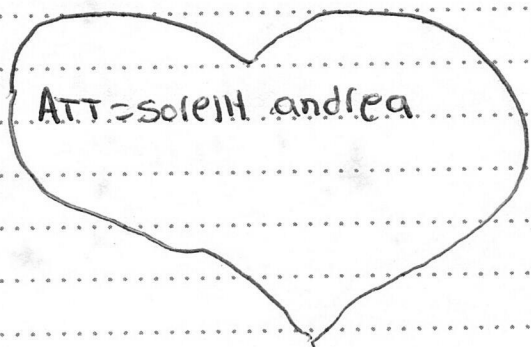 ATT=soleiH andrea